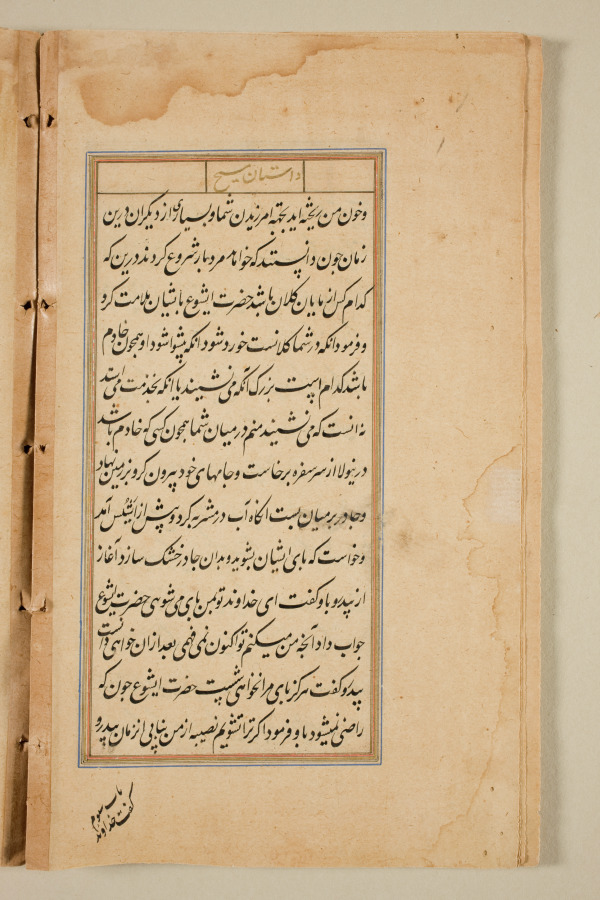 داستان مسیح
و خون من ریخته اید بجهة امرزیدن شما و بسیاری از دیکران درین
زمان جون دانستند که خواهد مرد باز شروع کردند درین که
کدام کس از مایان کلان باشد حضرت ایشوع باایشان ملامت کرد
و فرمود انکه در شما کلانست خورد شود انکه پیشوا شود او همچون خادم
باشد کدام است بزرک آنکه می نشیند یا انکه بخدمت می استد
نه انست که می نشیند منم در میان شما همچون کسی که خادم باشد
درینولا از سر سفره برخاست و جامهای خود بیرون کرد بر زمین نهاد
و جادر بر میان بست انکاه آب در مشربه کرد و پیش از ایشان آمد
و خواست که پای ایشان بشوید و بدان جادر خشک سازد آغاز
از پیدرو باو گفت ای خداوند تو من پای می شوئی حضرت ایشوع
جواب داد آنچه من میکنم تو اکنون نمی فهمی بعد ازان خواهی دانست
پیدرو گفت هرکز پای مرا نخواهی شست حضرت ایشوع جون که
راضی نمیشود باو فرمود اکر ترا نشویم نصیبه از من نیابی انزمان پیدرو
باب سوم
گفت خداوند